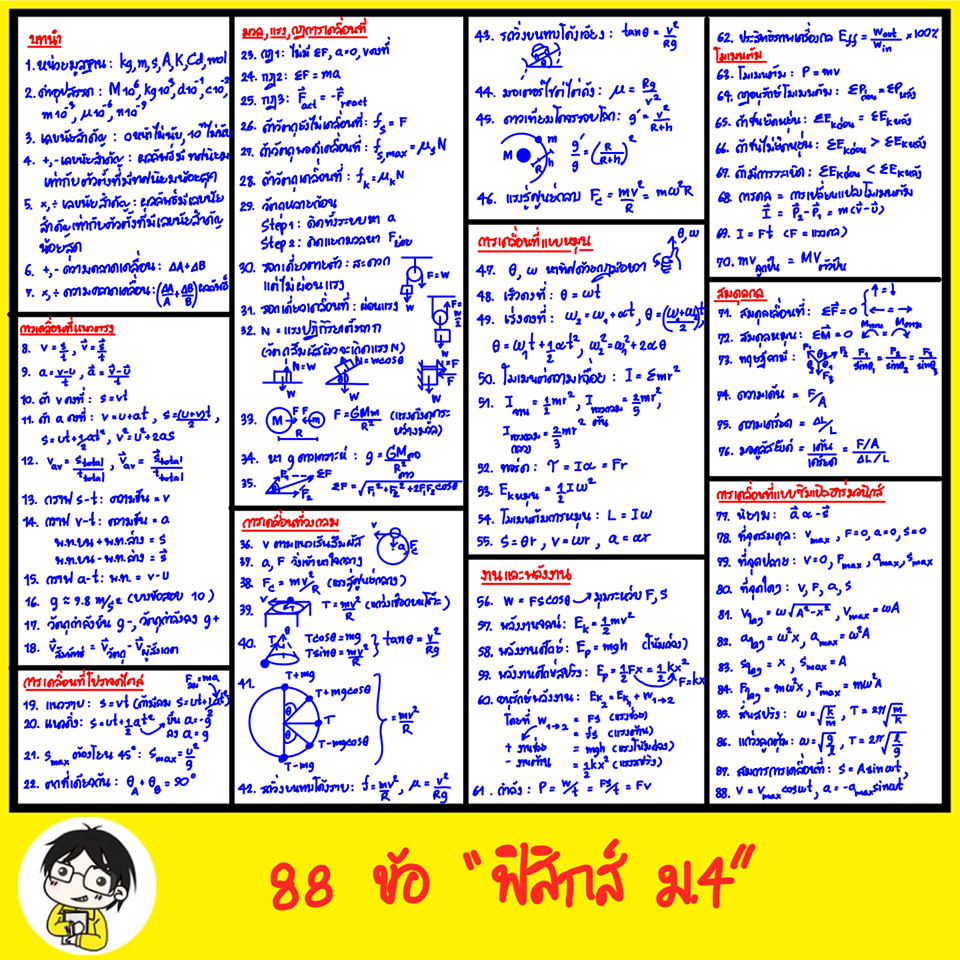 บทนำ
1. หน่วยมูลฐาน : kg, m, s, A, K, Cd, mol
2. คำอุปสรรค : M 10⁶, kg 10³, d 10⁻¹, c 10⁻²
m 10⁻³, μ 10⁻⁶, n 10⁻⁹
3. เลขนัยสำคัญ : 0 หน้าไม่นับ, 10ⁿ ไม่นับ
4. +,- เลขนัยสำคัญ : ผลลัพธ์มีทศนิยม
เท่ากับตัวตั้งที่มีทศนิยมน้อยสุด
5. ×,÷ เลขนัยสำคัญ : ผลลัพธ์มีเลขนัย
สำคัญเท่ากับตัวตั้งที่มีเลขนัยสำคัญ
น้อยสุด
6. +,- ความคลาดเคลื่อน : ΔA+ΔB
7. ×,÷ ความคลาดเคลื่อน : (ΔA/A + ΔB/B) ผลลัพธ์
การเคลื่อนที่แนวตรง
8. v = s/t , v⃗ = s⃗/t
9. a = v-u/t , a⃗ = v⃗-u⃗/t
10. ถ้า v คงที่ : s = vt
11. ถ้า a คงที่ : v = u+at , s = (u+v)t/2
s = ut+½at² , v² = u²+2as
12. v_av = s_total/t_total , v⃗_av = s⃗_total/t_total
13. กราฟ s-t : ความชัน = v
14. กราฟ v-t : ความชัน = a
พ.ท.บน + พ.ท.ล่าง = s
พ.ท.บน - พ.ท.ล่าง = s⃗
15. กราฟ a-t : พ.ท. = v-u
16. g ≈ 9.8 m/s² (บางข้อสอบ 10)
17. วัตถุกำลังขึ้น g -, วัตถุกำลังลง g +
18. v⃗สัมพัทธ์ = v⃗วัตถุ - v⃗ผู้สังเกต
การเคลื่อนที่โปรเจคไทล์
19. แนวราบ : s = ut (ถ้ามีลม s = ut+½at²) Fลม = ma
20. แนวดิ่ง : s = ut+½at² ขึ้น a = -g
ลง a = g
21. s_max ต้องโยน 45° : s_max = u²/g
22. ตกที่เดียวกัน : θ_A + θ_B = 90°
มวล, แรง, กฎการเคลื่อนที่
23. กฎ1 : ไม่มี ΣF, a=0, v คงที่
24. กฎ2 : ΣF = ma
25. กฎ3 : F⃗_act = -F⃗_react
26. ถ้าวัตถุยังไม่เคลื่อนที่ : f_s = F
27. ถ้าวัตถุพอดีเคลื่อนที่ : f_s,max = μ_s N
28. ถ้าวัตถุเคลื่อนที่ : f_k = μ_k N
29. วัตถุหลายก้อน
Step 1 : คิดทั้งระบบหา a
Step 2 : คิดแยกมวลหา Fย่อย
30. รอกเดี่ยวตายตัว : สะดวก
แต่ไม่ผ่อนแรง
F=W
W
31. รอกเดี่ยวเคลื่อนที่ : ผ่อนแรง
F=W/2
W
32. N = แรงปฏิกิริยาตั้งฉาก
(วัตถุสัมผัสผิวจะเกิดแรง N)
N=W
W
N=Wcosθ
θ
W
N=F
F
W
33. M F F m F = GMm/R² (แรงดึงดูดระหว่างมวล)
R
34. หา g ดาวเคราะห์ : g = GMดาว/R²ดาว
35. F₁ ΣF F₂ ΣF = √F₁²+F₂²+2F₁F₂cosθ
การเคลื่อนที่วงกลม
36. v ตามแนวเส้นสัมผัส
37. a, F วิ่งเข้าหาใจกลาง
v
a, F_c
38. F_c = mv²/R (แรงสู่ศูนย์กลาง)
39. v T T = mv²/R (แกว่งเชือกบนโต๊ะ)
40. T θ Tcosθ = mg
Tsinθ = mv²/R } tanθ = v²/Rg
41. T+mg
T+mgcosθ
T
T-mgcosθ
T-mg
θ
θ
} = mv²/R
42. รถวิ่งบนทางโค้งราบ : f = mv²/R , μ = v²/Rg
43. รถวิ่งบนทางโค้งเอียง : tanθ = v²/Rg
44. มอเตอร์ไซค์ไต่ถัง : μ = Rg/v²
45. ดาวเทียมโคจรรอบโลก : g' = v²/R+h
M m h R
g'/g = (R/R+h)²
46. แรงสู่ศูนย์กลาง F_c = mv²/R = mω²R
การเคลื่อนที่แบบหมุน
θ, ω
47. θ, ω หาทิศด้วยกฎมือขวา
48. เร็วคงที่ : θ = ωt
49. เร่งคงที่ : ω₂ = ω₁+αt , θ = (ω₁+ω₂/2)t
θ = ω₁t+½αt² , ω₂² = ω₁²+2αθ
50. โมเมนต์ความเฉื่อย : I = Σmr²
51. Iจาน = ½mr² , Iทรงกลมตัน = 2/5 mr²
Iทรงกลมกลวง = 2/3 mr²
52. ทอร์ก : τ = Iα = Fr
53. E_kหมุน = ½Iω²
54. โมเมนตัมการหมุน : L = Iω
55. s = θr , v = ωr , a = αr
งานและพลังงาน
56. W = Fscosθ มุมระหว่าง F, s
57. พลังงานจลน์ : E_k = ½mv²
58. พลังงานศักย์ : E_p = mgh (โน้มถ่วง)
59. พลังงานศักย์สปริง : E_p = ½Fx = ½kx²
F=kx
60. อนุรักษ์พลังงาน : E_k₂ = E_k₁ + W₁→₂
โดยที่ W₁→₂ = Fs (แรงช่วย)
= fs (แรงต้าน)
+ งานช่วย = mgh (แรงโน้มถ่วง)
- งานต้าน = ½kx² (แรงสปริง)
61. กำลัง : P = W/t = Fs/t = Fv
62. ประสิทธิภาพเครื่องกล Eff = W_out/W_in × 100%
โมเมนตัม
63. โมเมนตัม : P = mv
64. กฎอนุรักษ์โมเมนตัม : ΣPก่อน = ΣPหลัง
65. ถ้าชนยืดหยุ่น : ΣE_kก่อน = ΣE_kหลัง
66. ถ้าชนไม่ยืดหยุ่น : ΣE_kก่อน > ΣE_kหลัง
67. ถ้ามีการระเบิด : ΣE_kก่อน < ΣE_kหลัง
68. การดล = การเปลี่ยนแปลงโมเมนตัม
I⃗ = P⃗₂-P⃗₁ = m(v⃗-u⃗)
69. I = Ft (F = แรงดล)
70. mvลูกปืน = MVตัวปืน
สมดุลกล
71. สมดุลเลื่อนที่ : ΣF⃗ = 0 ↑ = ↓
← = →
72. สมดุลหมุน : ΣM⃗ = 0 Mทวน = Mตาม
73. ทฤษฎีลามี : F₁ θ₃ F₂ θ₂ θ₁ F₃ F₁/sinθ₁ = F₂/sinθ₂ = F₃/sinθ₃
74. ความเค้น = F/A
75. ความเครียด = ΔL/L
76. มอดูลัสยังค์ = เค้น/เครียด = F/A / ΔL/L
การเคลื่อนที่แบบซิมเปิลฮาร์มอนิกส์
77. นิยาม : a⃗ α -s⃗
78. ที่จุดสมดุล : v_max , F=0, a=0, s=0
79. ที่จุดปลาย : v=0, F_max, a_max, s_max
80. ที่จุดใดๆ : v, F, a, s
81. vใดๆ = ω√A²-x² , v_max = ωA
82. aใดๆ = ω²x , a_max = ω²A
83. sใดๆ = x , s_max = A
84. Fใดๆ = mω²x , F_max = mω²A
85. สั่นสปริง : ω = √k/m , T = 2π√m/k
86. แกว่งลูกตุ้ม : ω = √g/l , T = 2π√l/g
87. สมการการเคลื่อนที่ : s = A sinωt,
88. v = v_max cosωt, a = -a_max sinωt
88 ข้อ “ฟิสิกส์ ม.4”